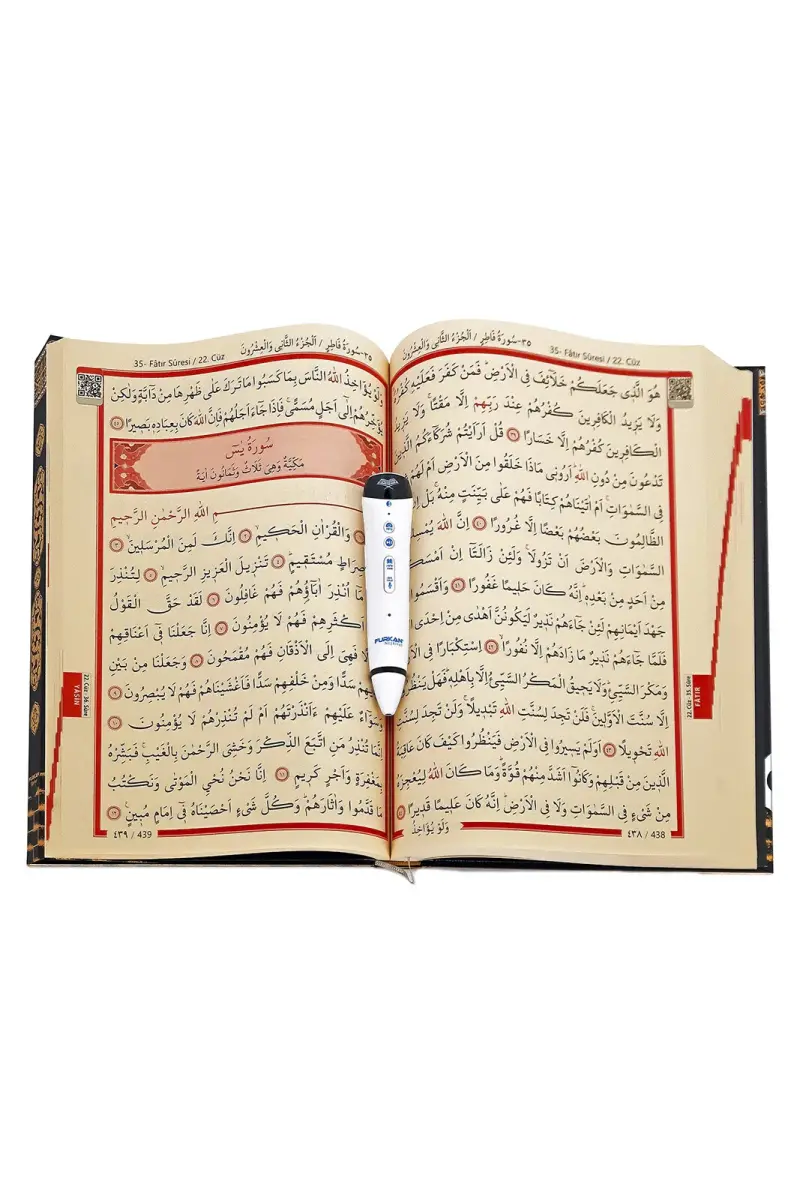 ٣٥-سُورَةُ فَاطِرٍ / اَلْجُزْءُ الثَّانِى وَالْعِشْرُونَ
35- Fâtır Sûresi / 22. Cüz
هُوَ الَّذِى جَعَلَكُمْ خَلَٓائِفَ فِى الْاَرْضِۜ فَمَنْ كَفَرَ فَعَلَيْهِ كُفْرُهُۜ
وَلَا يَزِيدُ الْكَافِرِينَ كُفْرُهُمْ عِنْدَ رَبِّهِمْ اِلَّا مَقْتًاۚ وَلَا يَزِيدُ
الْكَافِرِينَ كُفْرُهُمْ اِلَّا خَسَارًا ﴿٣٩﴾ قُلْ اَرَاَيْتُمْ شُرَكَٓاءَكُمُ الَّذِينَ
تَدْعُونَ مِنْ دُونِ اللّٰهِۜ اَرُونِى مَاذَا خَلَقُوا مِنَ الْاَرْضِ اَمْ لَهُمْ
فِى السَّمٰوَاتِۚ اَمْ اٰتَيْنَاهُمْ كِتَابًا فَهُمْ عَلٰى بَيِّنَتٍ مِنْهُۚ بَلْ اِنْ
الظَّالِمُونَ بَعْضُهُمْ بَعْضًا اِلَّا غُرُورًا ﴿٤٠﴾ اِنَّ اللّٰهَ يُمْسِكُ
السَّمٰوَاتِ وَالْاَرْضَ اَنْ تَزُولَاۚ وَلَئِنْ زَالَتَٓا اِنْ اَمْسَكَهُمَا
مِنْ اَحَدٍ مِنْ بَعْدِهٖۜ اِنَّهُ كَانَ حَلِيمًا غَفُورًا ﴿٤١﴾ وَاَقْسَمُوا
جَهْدَ اَيْمَانِهِمْ لَئِنْ جَٓاءَهُمْ نَذِيرٌ لَيَكُونُنَّ اَهْدٰى مِنْ اِحْدَى
فَلَمَّا جَٓاءَهُمْ نَذِيرٌ مَا زَادَهُمْ اِلَّا نُفُورًاۙ ﴿٤٢﴾ اِسْتِكْبَارًا فِى
وَمَكْرَ السَّيِّئِۜ وَلَا يَحِيقُ الْمَكْرُ السَّيِّئُ اِلَّا بِاَهْلِهٖۜ فَهَلْ يَنْظُرُونَ
اِلَّا سُنَّتَ الْاَوَّلِينَۚ فَلَنْ تَجِدَ لِسُنَّتِ اللّٰهِ تَبْدِيلًاۚ وَلَنْ تَجِدَ لِسُنَّتِ
اللّٰهِ تَحْوِيلًا ﴿٤٣﴾ اَوَلَمْ يَسِيرُوا فِى الْاَرْضِ فَيَنْظُرُوا كَيْفَ كَانَ عَاقِبَةُ
الَّذِينَ مِنْ قَبْلِهِمْ وَكَانُٓوا اَشَدَّ مِنْهُمْ قُوَّةًۜ وَمَا كَانَ اللّٰهُ لِيُعْجِزَهُ
مِنْ شَىْءٍ فِى السَّمٰوَاتِ وَلَا فِى الْاَرْضِۜ اِنَّهُ كَانَ عَلِيمًا قَدِيرًا ﴿٤٤﴾
وَلَوْ يُؤَاخِذُ
٤٣٨ / 438
22. Cüz - 35. Sûre
FATIR
٣٥-سُورَةُ فَاطِرٍ / اَلْجُزْءُ الثَّانِى وَالْعِشْرُونَ
35- Fâtır Sûresi / 22. Cüz
وَلَوْ يُؤَاخِذُ اللّٰهُ النَّاسَ بِمَا كَسَبُوا مَا تَرَكَ عَلٰى ظَهْرِهَا مِنْ دَٓابَّةٍ وَلٰكِنْ
يُؤَخِّرُهُمْ اِلٰٓى اَجَلٍ مُسَمًّىۚ فَاِذَا جَٓاءَ اَجَلُهُمْ فَاِنَّ اللّٰهَ كَانَ بِعِبَادِهٖ بَصِيرًا ﴿٤٥﴾
سُورَةُ يٰسٓ
مَكِّيَّةٌ وَهِىَ ثَلَاثٌ وَثَمَانُونَ اٰيَةً
بِسْمِ اللّٰهِ الرَّحْمٰنِ الرَّحِيمِ
وَالْقُرْاٰنِ الْحَكِيمِۙ ﴿٢﴾ اِنَّكَ لَمِنَ الْمُرْسَلِينَۙ ﴿٣﴾
صِرَاطٍ مُسْتَقِيمٍۜ ﴿٤﴾ تَنْزِيلَ الْعَزِيزِ الرَّحِيمِۙ ﴿٥﴾ لِتُنْذِرَ
مَٓا اُنْذِرَ اٰبَٓاؤُ۬هُمْ فَهُمْ غَافِلُونَ ﴿٦﴾ لَقَدْ حَقَّ الْقَوْلُ
اَكْثَرِهِمْ فَهُمْ لَا يُؤْمِنُونَ ﴿٧﴾ اِنَّا جَعَلْنَا فِٓى اَعْنَاقِهِمْ
فَهِىَ اِلَى الْاَذْقَانِ فَهُمْ مُقْمَحُونَ ﴿٨﴾ وَجَعَلْنَا مِنْ بَيْنِ
سَدًّا وَمِنْ خَلْفِهِمْ سَدًّا فَاَغْشَيْنَاهُمْ فَهُمْ لَا يُبْصِرُونَ ﴿٩﴾
وَسَوَٓاءٌ عَلَيْهِمْ ءَاَنْذَرْتَهُمْ اَمْ لَمْ تُنْذِرْهُمْ لَا يُؤْمِنُونَ ﴿١٠﴾
اِنَّمَا تُنْذِرُ مَنِ اتَّبَعَ الذِّكْرَ وَخَشِىَ الرَّحْمٰنَ بِالْغَيْبِۚ فَبَشِّرْهُ
بِمَغْفِرَةٍ وَاَجْرٍ كَرِيمٍ ﴿١١﴾ اِنَّا نَحْنُ نُحْىِ الْمَوْتٰى وَنَكْتُبُ
مَا قَدَّمُوا وَاٰثَارَهُمْۜ وَكُلَّ شَىْءٍ اَحْصَيْنَاهُ فِٓى اِمَامٍ مُبِينٍ۟ ﴿١٢﴾
٤٣٩ / 439
22. Cüz - 36. Sûre
YASİN
FURKAN